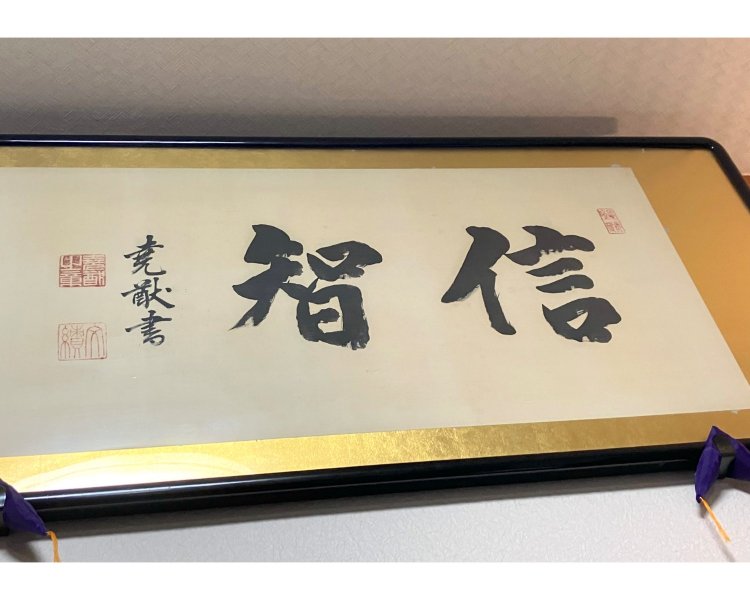 信智
堯猷書